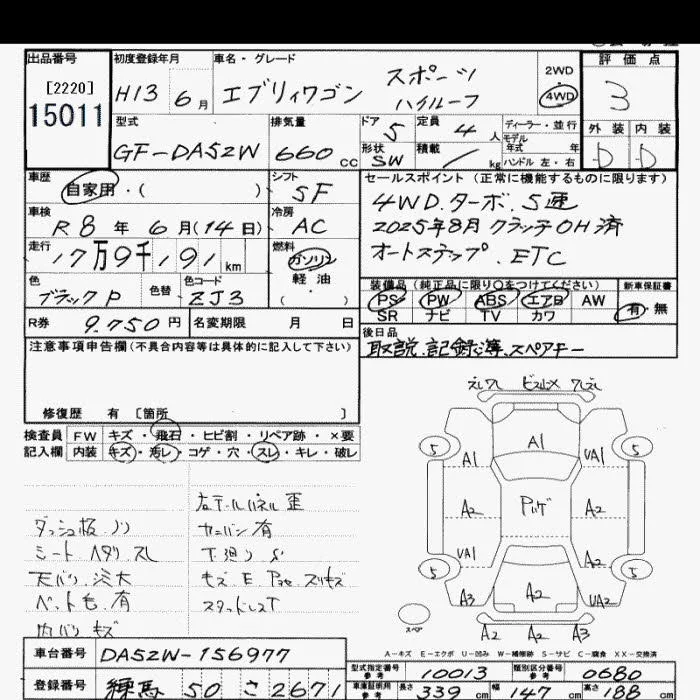 出品番号
[2220]
15011
初度登録年月
H13 6月
車名・グレード
エブリィワゴン スポーツ
ハイルーフ
2WD
・
4WD
評価点
3
型式
GF-DA52W
排気量
660 cc
ドア 5
形状 SW
定員 4 人
積載 / kg
ディーラー・並行
モデル
年式 年
ハンドル 左・右
外装 内装
D D
車歴
自家用・( )
シフト
5F
車検
R8年 6月(14日)
冷房
AC
走行
17万9千191km
燃料
ガソリン
軽油
・
( )
色
ブラックP
色替
色コード
ZJ3
R券 9.750円
名変期限 月 日
セールスポイント(正常に機能するものに限ります)
4WD.ターボ.5速
2025年8月 クラッチOH済
オートステップ.ETC
装備品(純正品に限り○をつけてください)
PS PW ABS エアB AW
SR ナビ TV カワ
新車保証書
有・無
後日品
取説.記録簿.スペアキー
注意事項申告欄(不具合内容等は具体的に記入して下さい)
修復歴 有 〔箇所 〕
検査員 FW キズ・飛石・ヒビ割・リペア跡・×要
記入欄 内装 キズ・汚レ・コゲ・穴・スレ・キレ・破レ
右テールパネル歪
ダッシュ板
カーバン有
シート ヘタリ スレ
下廻り S
天バリ 汚大
ペット毛.有
スタッドレスT
内バリ キズ
A1
5 5
A1 UA1
A2 A2
UA1 A2
5 5
A3 A2 UA2
スペア
A2 A2 A3
A-キズ E-エクボ U-凹み W-補修跡 S-サビ C-腐食 XX-交換済
車台番号 DA52W-156977
登録番号 練馬 50 さ 2671
型式指定番号 参考 10013
類別区分番号 参考 0680
車庫証明用 参考 長さ 339cm 幅 147cm 高さ 188cm